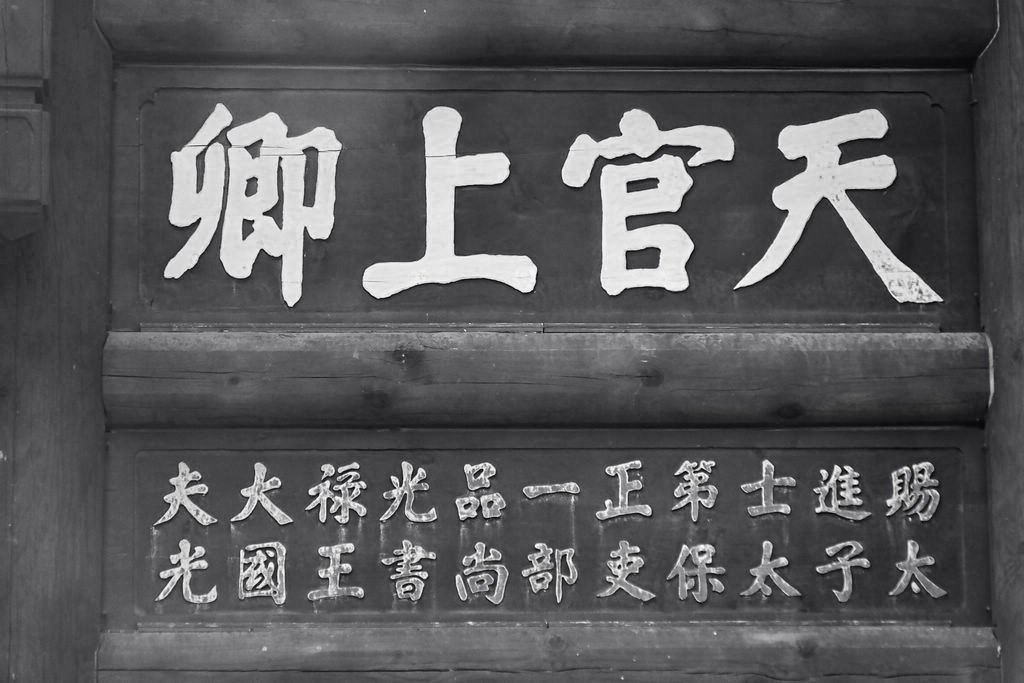 天官上卿
賜進士第正一品光祿大夫
太子太保吏部尚書王國光